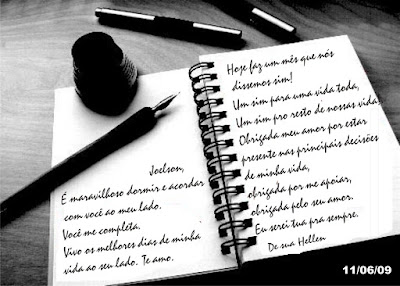 Joelson,
É maravilhoso dormir e acordar
com você ao meu lado.
Você me completa.
Vivo os melhores dias de minha
vida ao seu lado. Te amo.
Hoje faz um mês que nós
dissemos sim!
Um sim para uma vida toda,
Um sim pro resto de nossas vidas,
Obrigada meu amor por estar
presente nas principais decisões
de minha vida,
obrigada por me apoiar,
obrigada pelo seu amor.
Eu serei tua pra sempre.
De sua Hellen
11/06/09